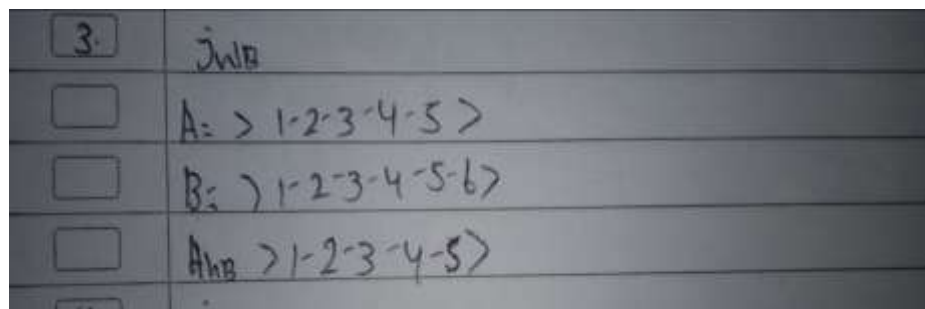 3. jwB
A= > 1-2-3-4-5 >
B= > 1-2-3-4-5-6 >
AnB > 1-2-3-4-5 >